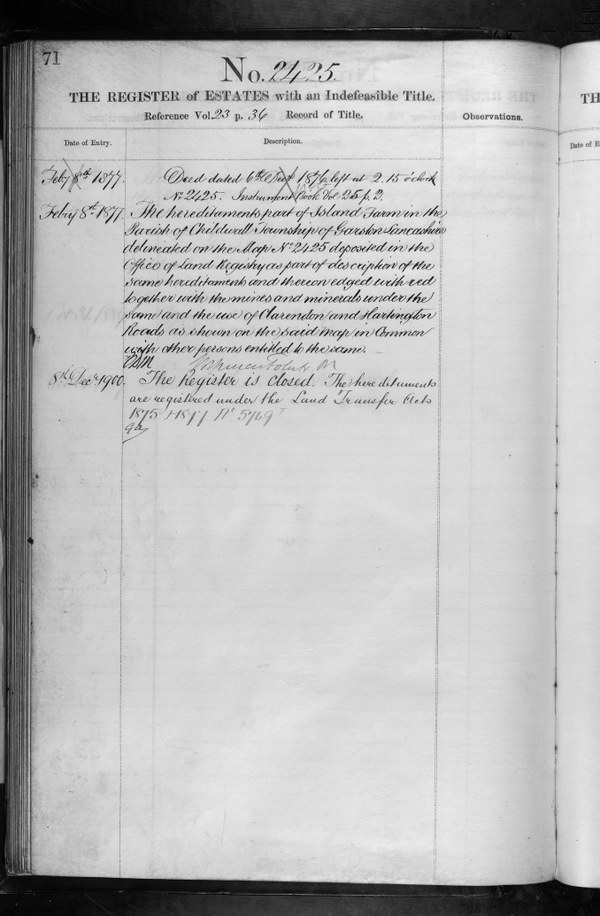 71
No. 2425.
THE REGISTER of ESTATES with an Indefeasible Title.
Reference Vol. 23 p. 36 Record of Title.
Observations.
Date of Entry.
Description.
Feby 8th 1877.
Deed dated 6th 1876 left at 2.15 o'clock
No 2425. Instrument Book Vol 25 p. 2.
Feby 8th 1877.
The hereditaments part of Island Farm in the
Parish of Childwall Township of Garston Lancashire
delineated on the Map No 2425 deposited in the
Office of Land Registry as part of description of the
same hereditaments and thereon edged with red
together with the mines and minerals under the
same and the use of Clarendon and Hartington
Roads as shown on the said map in Common
with other persons entitled to the same.
8th Decr 1900.
The Register is closed. The hereditaments
are registered under the Land Transfer Acts
1875 & 1897 No 5769
TH
Date of E